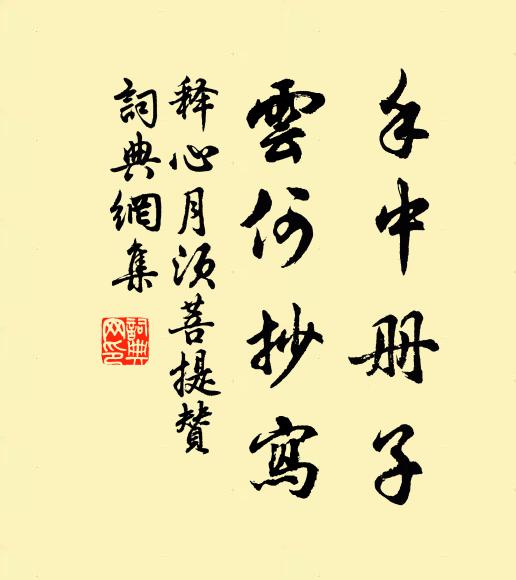 手中册子
雲何抄寫
释心月须菩提赞
詞典網集
詞典
网印